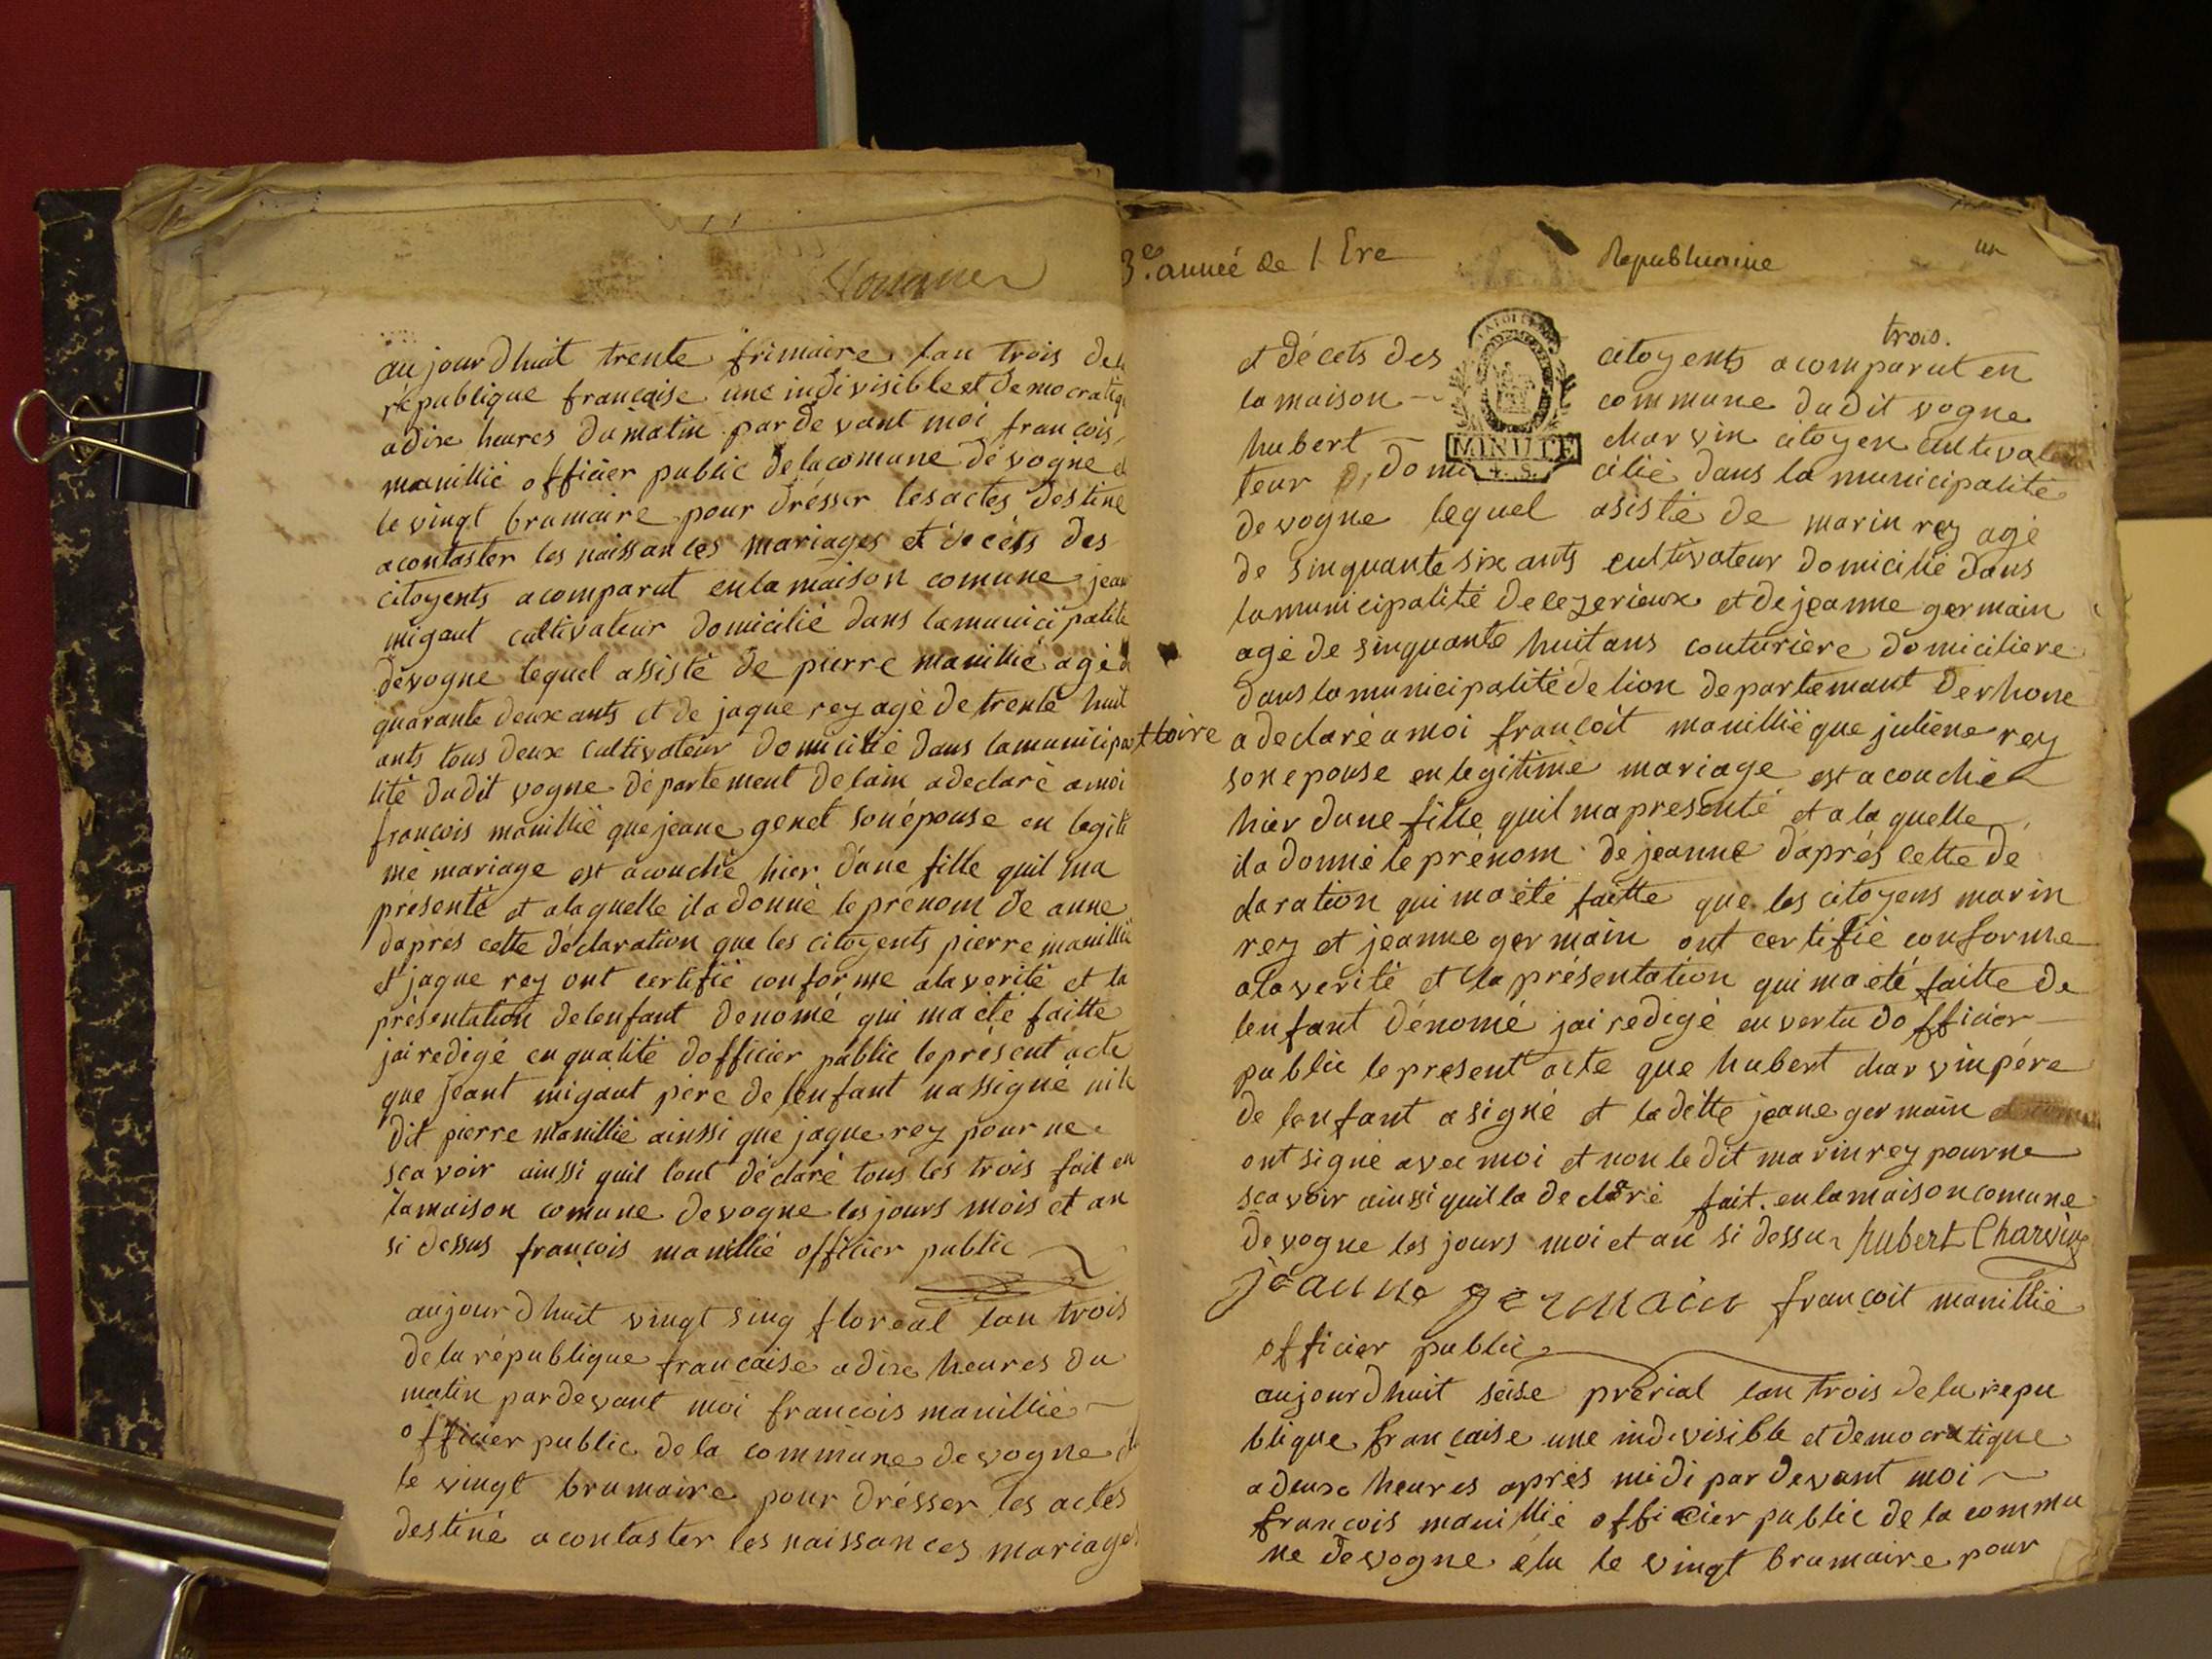 aujourdhuit trente frimaire lan trois de la
république francaise une indivisible et democratiq
a dix heures du matin par devant moi francois
manillié officier public de la comune de vogne
le vingt brumaire pour drésser les actes destine
a contaster les naissances mariages et décéts des
citoyents a comparut en la maison comune jean
migaut cultivateur domicilié dans la municipalité
de vogne lequel assisté de pierre manillié agé d
quarante deux ants et de jaque rey agé de trente huit
ants tous deux cultivateur domicilié dans la municipa
lité dudit vogne département de lain a declaré a moi
francois manillié que jeane genet son épouse en legiti
me mariage est acouché hier dune fille quil ma
présenté et a laquelle il a donné le prénom de anne
daprés cette déclaration que les citoyents pierre manillié
et jaque rey ont certifié conforme a la verité et la
présentation de lenfant denomé qui ma été faitte
jai redigé en qualité dofficier public le présent acte
que jeant migaut pére de lenfant na signé ni le
dit pierre manillié ainssi que jaque rey pour ne
scavoir ainssi quil lont déclaré tous les trois fait en
la maison comune de vogne les jours mois et an
si dessus francois manillié officier public
aujourdhuit vingt sinq floréal lan trois
de la république francaise a dix heures du
matin par devant moi francois manillié
officier public de la commune de vogne
le vingt brumaire pour drésser les actes
destiné a contaster les naissances mariages
3e. année de l Ere Republicaine
trois.
et décets des citoyents a comparut en
la maison commune dudit vogne
hubert charvin citoyen cultivat
MINUTE
teur domicilié dans la municipalité
4. S.
de vogne lequel asisté de marin rey agé
de sinquante six ants cultivateur domicilié dans
la municipalité de cezerieux et de jeanne germain
agé de sinquante huit ans couturière domiciliere
dans la municipalité de lion departemant de rhone
a declaré a moi françoit manillié que juliene rey
son epouse en legitime mariage est acouché
hier dune fille quil ma presenté et a la quelle
il a donné le prénom de jeanne daprés cette de
claration qui ma été faitte que les citoyens marin
rey et jeanne germain ont certifié conforme
a la verité et la présentation qui ma été faitte de
lenfant dénomé jai redigé en vertu dofficier
public le present acte que hubert charvin pére
de lenfant a signé et la ditte jeane germain
ont signé avec moi et non le dit marin rey pour ne
scavoir ainssi quil la declaré fait en la maison comune
de vogne les jours moi et an si dessu hubert Charvin
jeanne germain françoit manillié
officier public
aujourdhuit seise prerial lan trois de la repu
blique francaise une indivisible et democratique
a deuxe heures aprés midi par devant moi
francois manillié officier public de la commu
ne de vogne élu le vingt brumaire pour